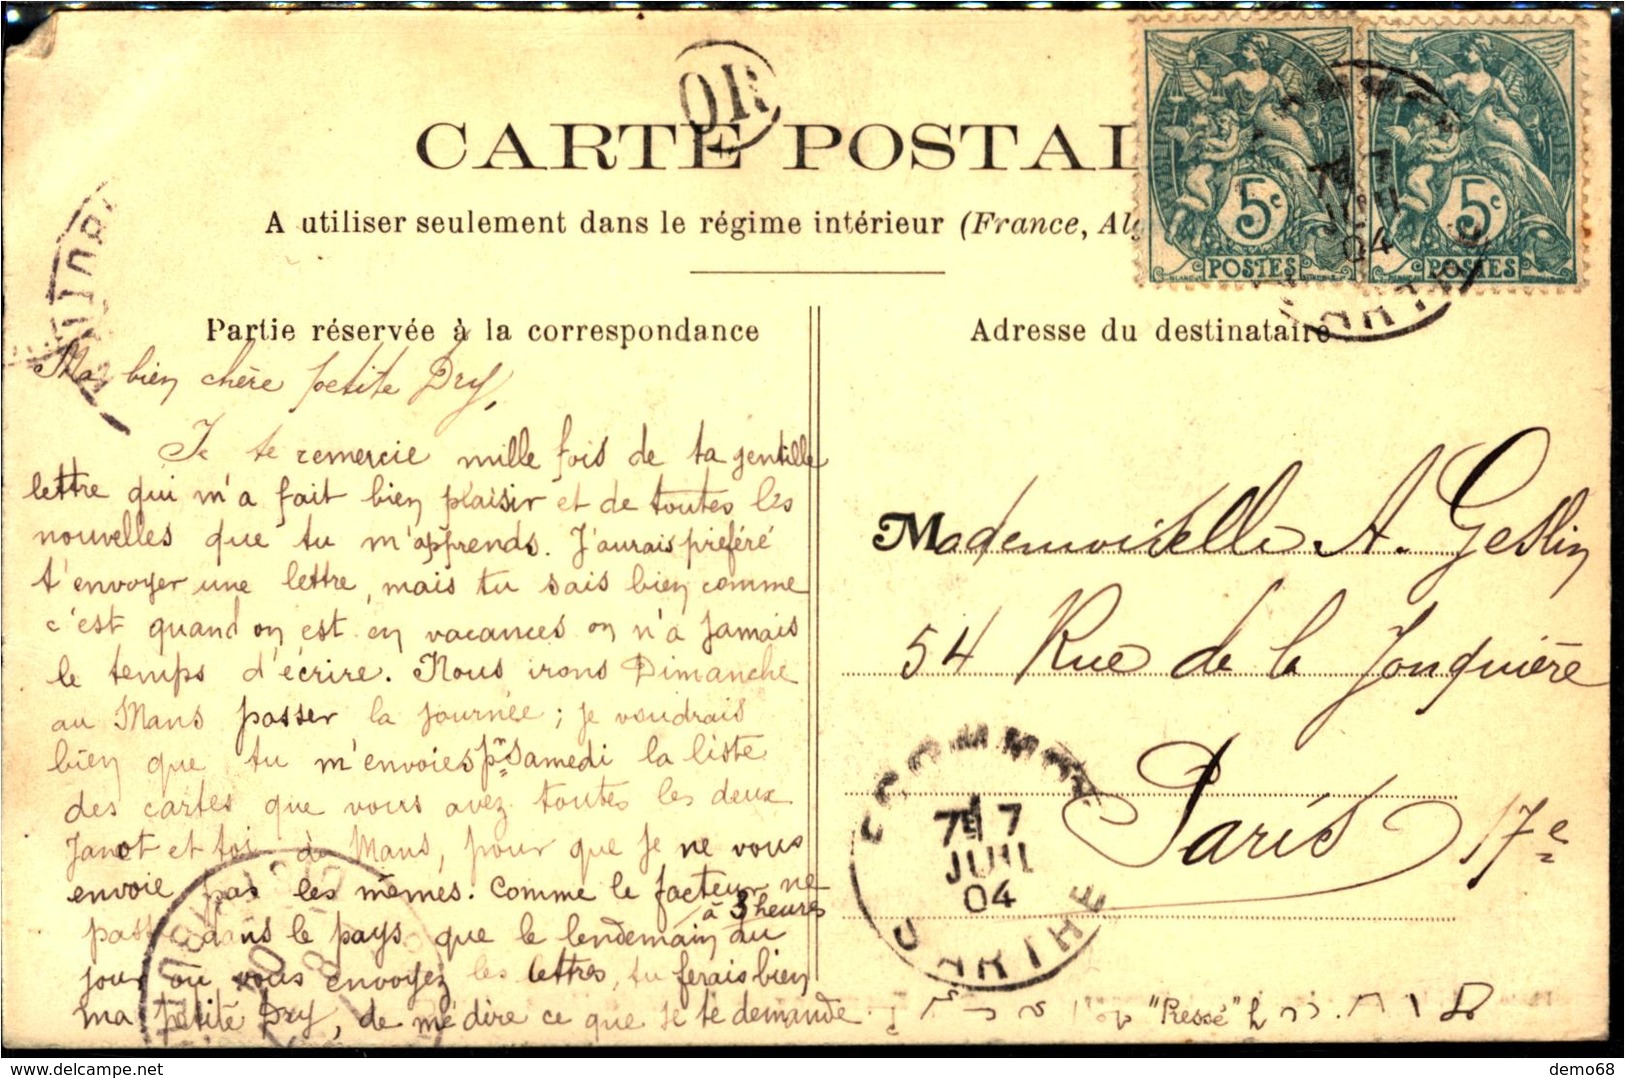 OR
CARTE POSTAL
A utiliser seulement dans le régime intérieur (France, Alg
5c 5c
POSTES POSTES
7E 7
JUIL
04
Partie réservée à la correspondance
Ma bien chère petite Dry,
Je te remercie mille fois de ta gentille
lettre qui m'a fait bien plaisir et de toutes les
nouvelles que tu m'apprends. J'aurais préféré
t'envoyer une lettre, mais tu sais bien comme
c'est quand on est en vacances on n'a jamais
le temps d'écrire. Nous irons Dimanche
au Mans passer la journée ; je voudrais
bien que tu m'envoies pr Samedi la liste
des cartes que vous avez toutes les deux
Janot et toi du Mans, pour que je ne vous
envoie pas les mêmes. Comme le facteur ne
passe dans le pays que le lendemain à 3 heures du
jour où vous envoyez les lettres, tu ferais bien
ma petite Dry, de me dire ce que je te demande.
"Pressé"
Adresse du destinataire
Mademoiselle A. Geslin
54 Rue de la Jonquière
Paris 17e
ECOMMOY
7E 7
JUIL
04
SARTHE
demo68